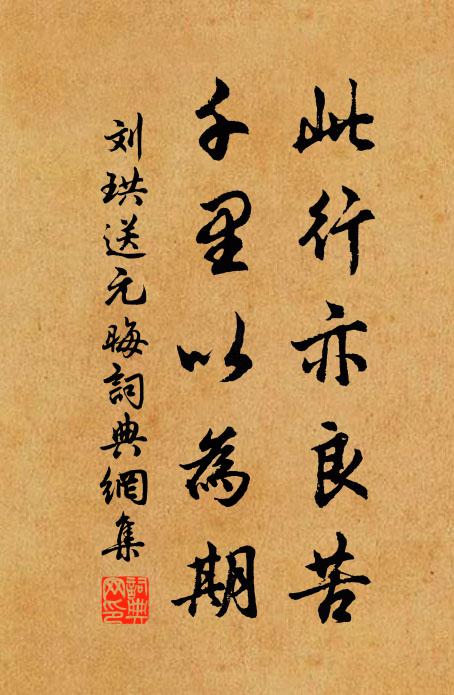 此行亦良苦
千里以為期
刘珙送元晦詞典網集
詞典网印